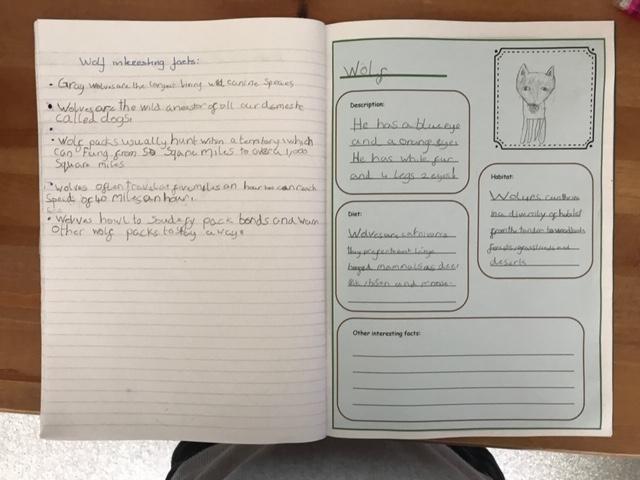 Wolf interesting facts:
• Gray wolves are the largest living wild canine species
• Wolves are the wild ancestor of all our domestic
called dogs.
• Wolf packs usually hunt within a territory, which
can rung from 50 sqare miles to over a 1,000
Square miles
• wolves often travel at five miles an hour can reach
Speeds of 40 miles an hour.
• Wolves howl to soudefy pack bonds and warn
other wolf packs to stay away.
Wolf
Description:
He has a blue eye
and a orange eye.
He has white fur
and 4 legs 2 eyes
Habitat:
Wolves can thrive
in a diversity of habitat
from the tundra to woodlands
forests, grasslands and
deserts
Diet:
Wolves are carnivores
they prefer to eat large
hooped mammals as deer
elk, bison and moose.
Other interesting facts: